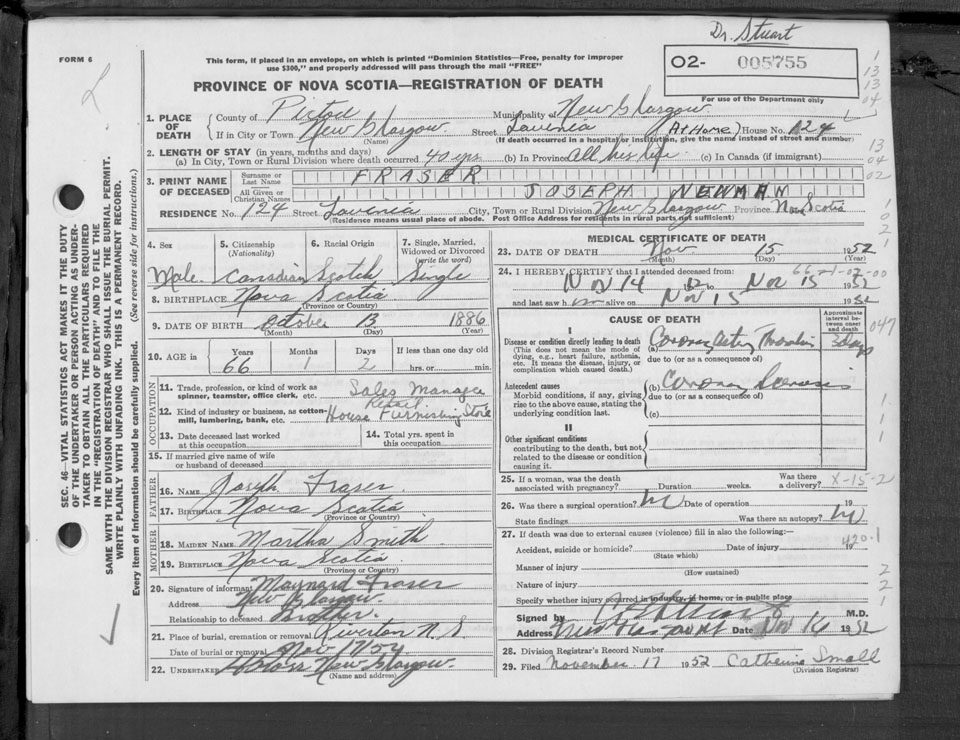 Dr. Stuart
FORM 6
This form, if placed in an envelope, on which is printed "Dominion Statistics—Free, penalty for improper
use $300," and properly addressed will pass through the mail "FREE"
02- 005755
PROVINCE OF NOVA SCOTIA—REGISTRATION OF DEATH
For use of the Department only
1. PLACE OF DEATH
County of Pictou Municipality of New Glasgow
If in City or Town New Glasgow (Name) Street Lavinia (At Home) House No. 124
(If death occurred in a hospital or institution, give the name instead of street and number)
2. LENGTH OF STAY (in years, months and days)
(a) In City, Town or Rural Division where death occurred 40 yrs (b) In Province All his life (c) In Canada (if immigrant)
3. PRINT NAME OF DECEASED
Surname or Last Name FRASER
All Given or Christian Names JOSEPH NEWMAN
RESIDENCE No. 124 Street Lavinia City, Town or Rural Division New Glasgow Province Nova Scotia
(Residence means usual place of abode. Post Office Address for residents in rural parts not sufficient)
4. Sex Male
5. Citizenship (Nationality) Canadian
6. Racial Origin Scotch
7. Single, Married, Widowed or Divorced (write the word) Single
8. BIRTHPLACE Nova Scotia
(Province or Country)
9. DATE OF BIRTH October 13 1886
(Month) (Day) (Year)
10. AGE in Years 66 Months Days 2 If less than one day old hrs. or min.
OCCUPATION
11. Trade, profession, or kind of work as spinner, teamster, office clerk, etc. Sales Manager
12. Kind of industry or business, as cotton-mill, lumbering, bank, etc. Retail House Furnishing Store
13. Date deceased last worked at this occupation
14. Total yrs. spent in this occupation
15. If married give name of wife or husband of deceased
FATHER
16. NAME Joseph Fraser
17. BIRTHPLACE Nova Scotia
(Province or Country)
MOTHER
18. MAIDEN NAME Martha Smith
19. BIRTHPLACE Nova Scotia
(Province or Country)
20. Signature of informant Maynard Fraser
Address New Glasgow
Relationship to deceased Brother
21. Place of burial, cremation or removal Riverton N.S.
Date of burial or removal Nov 17
22. UNDERTAKER New Glasgow
(Name and address)
MEDICAL CERTIFICATE OF DEATH
23. DATE OF DEATH Nov 15 1952
(Month) (Day) (Year)
24. I HEREBY CERTIFY that I attended deceased from:
Nov 14 52 to Nov 15 1952
and last saw him alive on Nov 15 1952
CAUSE OF DEATH
Approximate interval between onset and death
I
Disease or condition directly leading to death
(This does not mean the mode of dying, e.g., heart failure, asthenia, etc. It means the disease, injury, or complication which caused death.)
(a) Coronary Artery Thrombosis 3 days
due to (or as a consequence of)
Antecedent causes
Morbid conditions, if any, giving rise to the above cause, stating the underlying condition last.
(b) Coronary Sclerosis
due to (or as a consequence of)
(c)
II
Other significant conditions
contributing to the death, but not related to the disease or condition causing it.
25. If a woman, was the death associated with pregnancy? Duration weeks. Was there a delivery? X-15-2
26. Was there a surgical operation? No Date of operation 19
State findings Was there an autopsy? No
27. If death was due to external causes (violence) fill in also the following:—
Accident, suicide or homicide? (State which) Date of injury 19 420.1
Manner of injury
(How sustained)
Nature of injury
Specify whether injury occurred in industry, in home, or in public place
Signed by M.D.
Address New Glasgow NS Date Nov 16 1952
28. Division Registrar's Record Number
29. Filed November 17 1952 Catherine Small
(Division Registrar)
SEC. 46—VITAL STATISTICS ACT MAKES IT THE DUTY
OF THE UNDERTAKER OR PERSON ACTING AS UNDER-
TAKER TO OBTAIN ALL THE PARTICULARS REQUIRED
IN THE "REGISTRATION OF DEATH" AND TO FILE THE
SAME WITH THE DIVISION REGISTRAR WHO SHALL ISSUE THE BURIAL PERMIT.
WRITE PLAINLY WITH UNFADING INK. THIS IS A PERMANENT RECORD.
Every item of information should be carefully supplied. (See reverse side for instructions.)